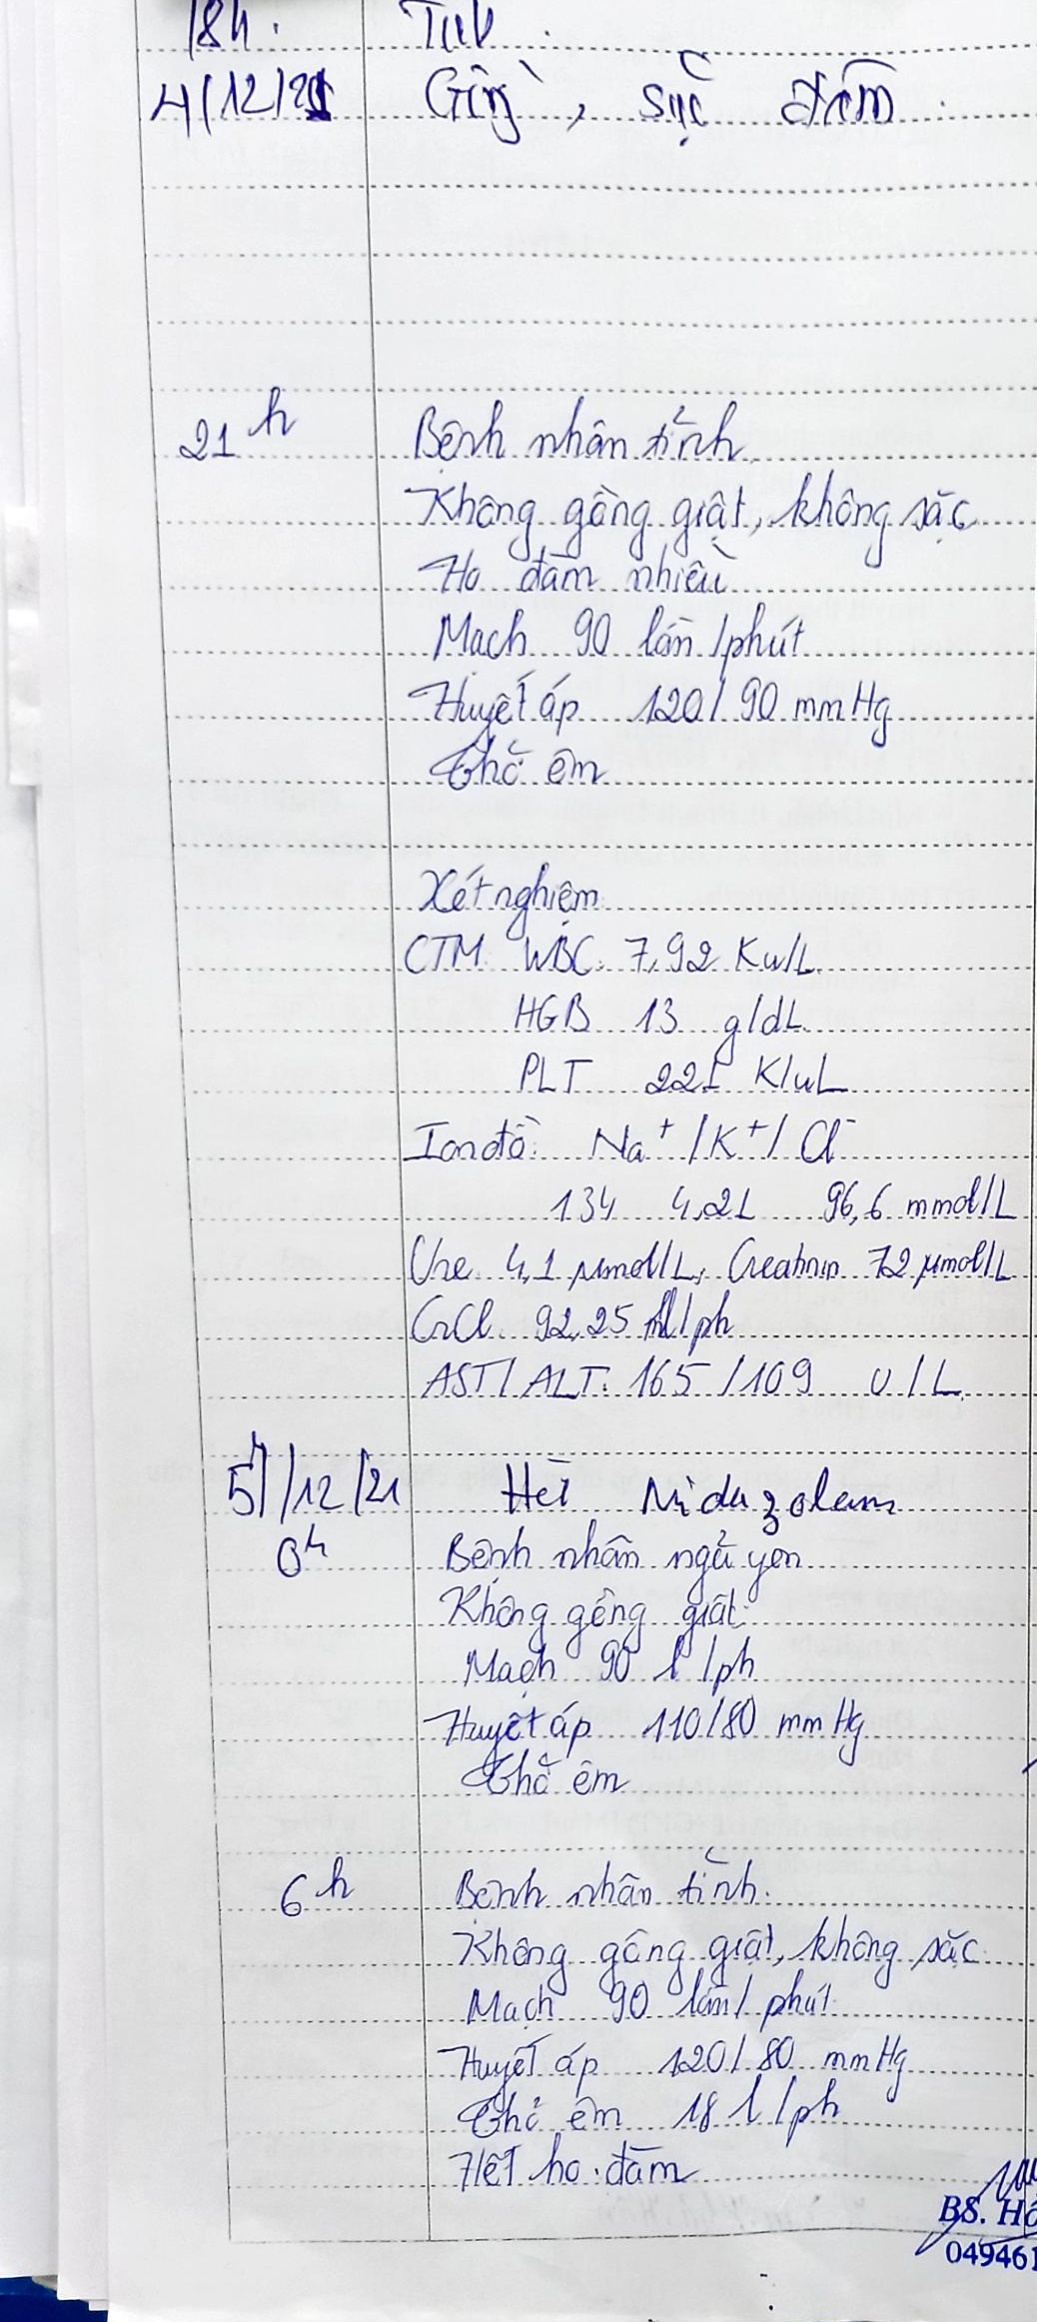 18h.
4/12/21 Gồng, sặc đàm.
21h Bệnh nhân tỉnh
Không gồng giật, không sặc
Ho đàm nhiều
Mạch 90 lần/phút
Huyết áp 120/90 mmHg
Thở êm
Xét nghiệm
CTM WBC: 7,92 K/uL
HGB 13 g/dL
PLT 221 K/uL
Ion đồ: Na+/K+/Cl-
134 4,21 96,6 mmol/L
Ure 4,1 µmol/L, Creatinin 72 µmol/L
CrCl 92,25 ml/ph
AST/ALT: 165/109 U/L
5/12/21 Hết Midazolam
0h Bệnh nhân ngủ yên
Không gồng giật
Mạch 90 l/ph
Huyết áp 110/80 mmHg
Thở êm
6h Bệnh nhân tỉnh.
Không gồng giật, không sặc
Mạch 90 lần/phút
Huyết áp 120/80 mmHg
Thở êm 18 l/ph
Hết ho đàm
BS. Hồ
049461